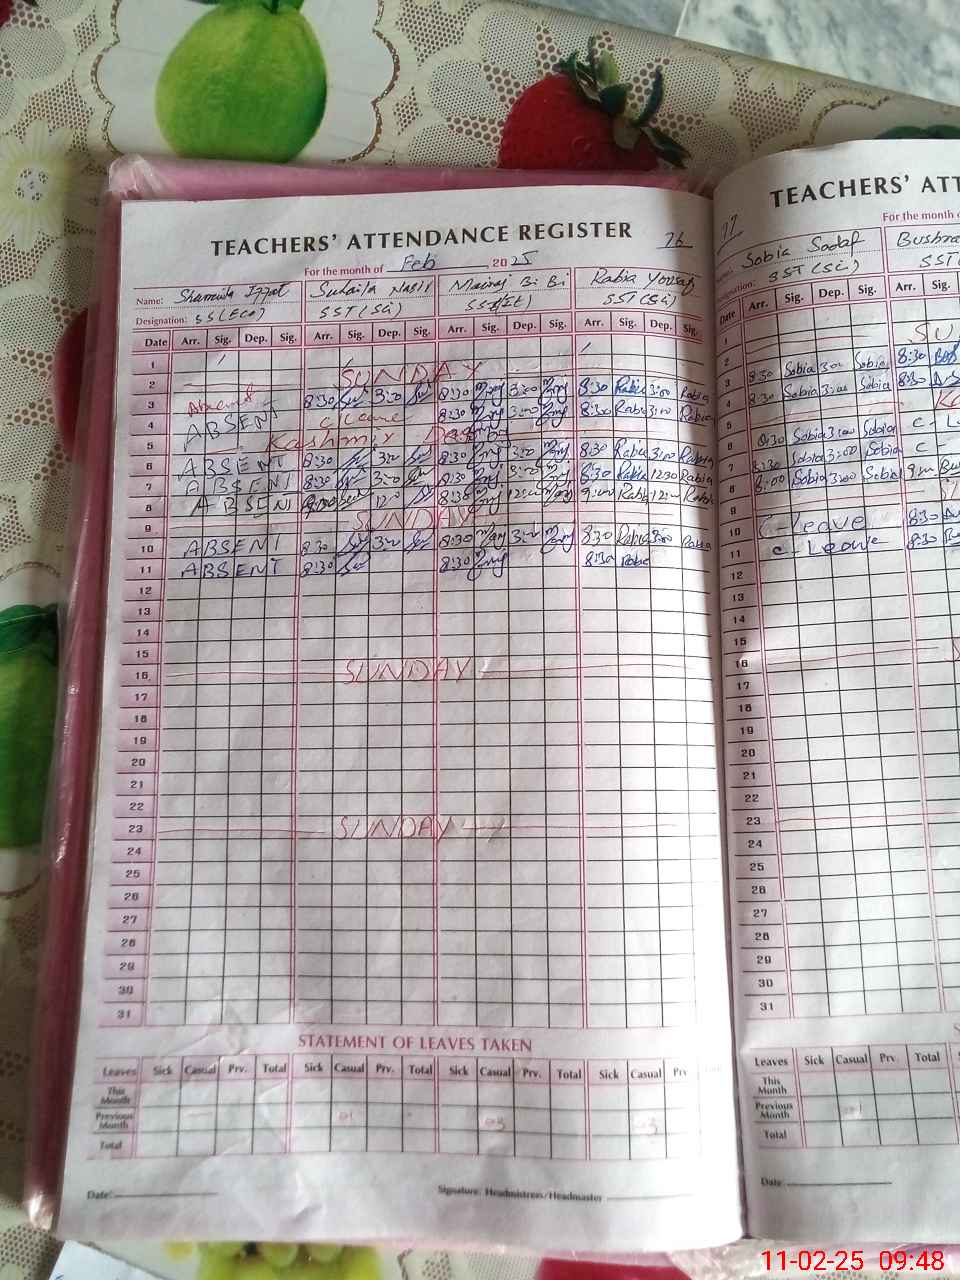 TEACHERS' ATTENDANCE REGISTER 76
For the month of Feb 2025
Name: Shamila Izzat Suhaila Nasir Mairaj Bi Bi Rabia Yousaf
Designation: SS (Eco) SST (Sci) SST SST (Sci)
Date Arr. Sig. Dep. Sig. Arr. Sig. Dep. Sig. Arr. Sig. Dep. Sig. Arr. Sig. Dep. Sig.
1
2 SUNDAY
3 Absent 8:30 3:00 8:30 3:00 8:30 Rabia 3:00 Rabia
4 ABSENT C leave 8:30 3:00 8:30 Rabia 3:00 Rabia
5 Kashmir Day
6 ABSENT 8:30 3:00 8:30 3:00 8:30 Rabia 3:00 Rabia
7 ABSENT 8:30 8:30 8:30 Rabia 12:30 Rabia
8 ABSENT 12:00 8:30 12:00 9:00 Rabia 12:00 Rabia
9 SUNDAY
10 ABSENT 8:30 3:00 8:30 3:00 8:30 Rabia 3:00 Rabia
11 ABSENT 8:30 8:30 8:30 Rabia
12
13
14
15
16 SUNDAY
17
18
19
20
21
22
23 SUNDAY
24
25
26
27
28
29
30
31
STATEMENT OF LEAVES TAKEN
Leaves Sick Casual Prv. Total Sick Casual Prv. Total Sick Casual Prv. Total Sick Casual Prv
This Month
Previous Month 01 03 03
Total
Date: Signature: Headmistress/Headmaster
77 TEACHERS' ATT
For the month o
Sobia Sadaf Bushra
Designation: SST (Sci) SST
Date Arr. Sig. Dep. Sig. Arr. Sig.
1
2 SU
3 8:30 Sobia 3:00 Sobia 8:30
4 8:30 Sobia 3:00 Sobia 8:30
5
6 8:30 Sobia 3:00 Sobia C-L
7 8:30 Sobia 3:00 Sobia C
8 8:00 Sobia 3:00 Sobia 9:00
9
10 C-leave 8:30
11 C-Leave 8:30
12
13
14
15
16
17
18
19
20
21
22
23
24
25
26
27
28
29
30
31
Leaves Sick Casual Prv. Total Sick
This Month
Previous Month 01
Total
Date:
11-02-25 09:48